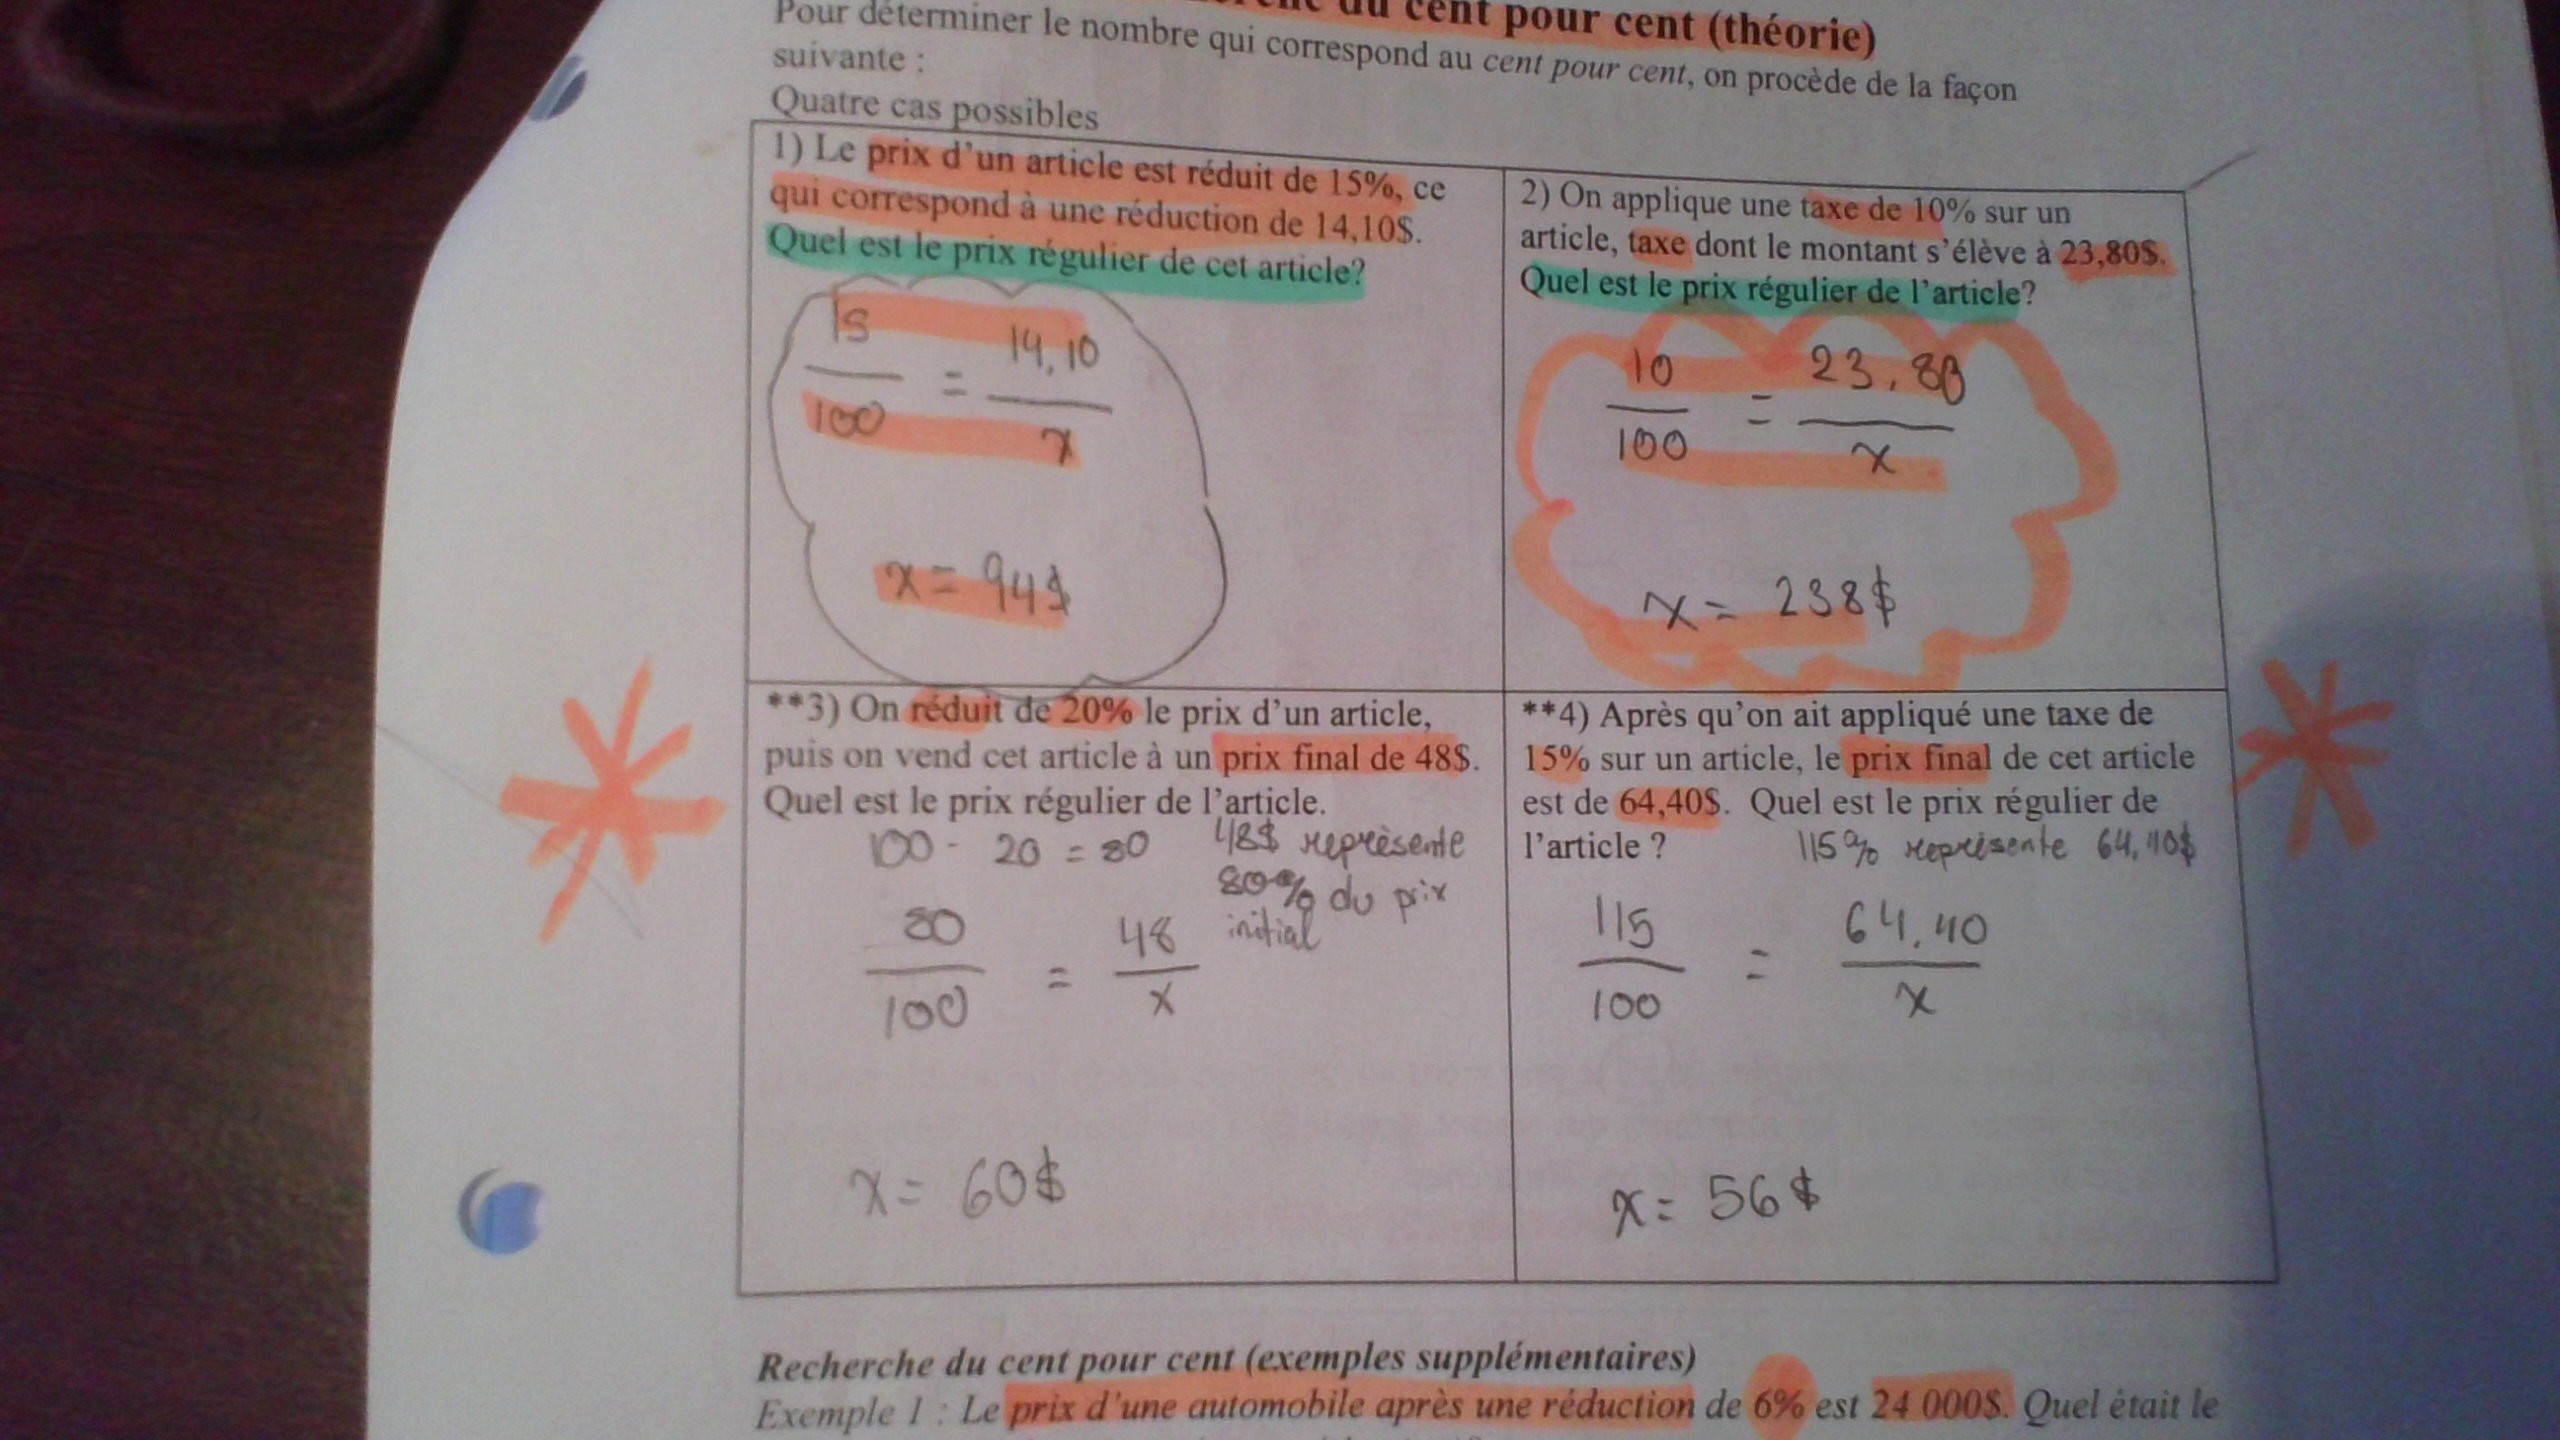 du cent pour cent (théorie)
Pour déterminer le nombre qui correspond au cent pour cent, on procède de la façon
suivante :
Quatre cas possibles
1) Le prix d'un article est réduit de 15%, ce
qui correspond à une réduction de 14,10$.
Quel est le prix régulier de cet article?
15 = 14,10
100 x
x = 94$
2) On applique une taxe de 10% sur un
article, taxe dont le montant s'élève à 23,80$.
Quel est le prix régulier de l'article?
10 = 23,80
100 x
x = 238$
**3) On réduit de 20% le prix d'un article,
puis on vend cet article à un prix final de 48$.
Quel est le prix régulier de l'article.
100 - 20 = 80
48$ reprèsente
80% du prix
initial
80 = 48
100 x
x = 60$
**4) Après qu'on ait appliqué une taxe de
15% sur un article, le prix final de cet article
est de 64,40$. Quel est le prix régulier de
l'article ?
115% représente 64,40$
115 = 64,40
100 x
x = 56$
Recherche du cent pour cent (exemples supplémentaires)
Exemple 1 : Le prix d'une automobile après une réduction de 6% est 24 000$. Quel était le